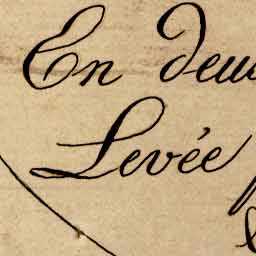 En deux
Levée